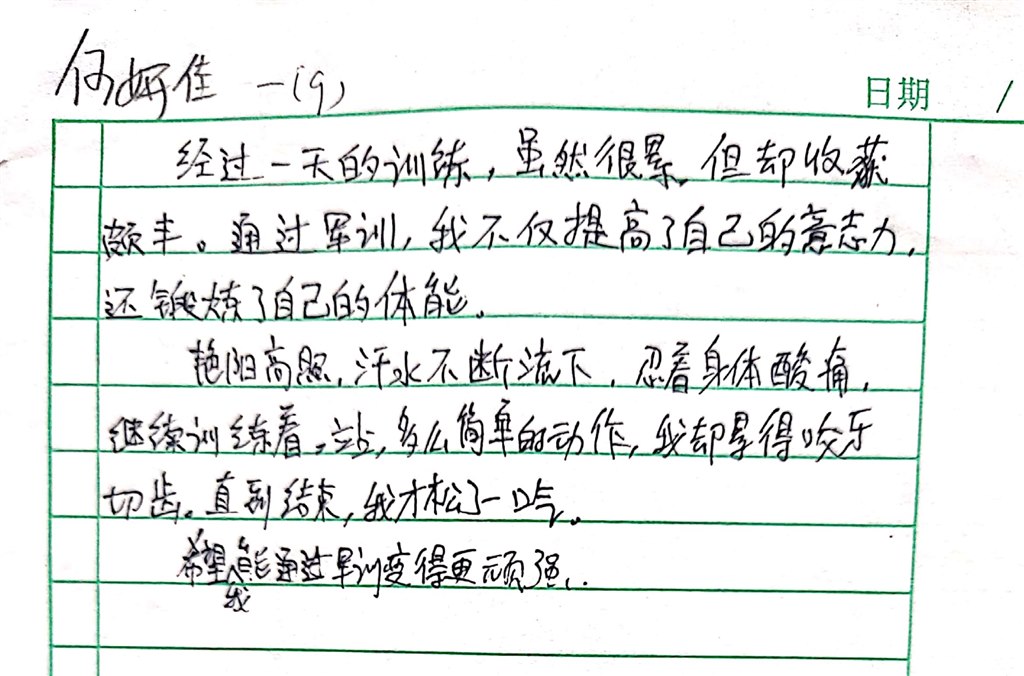 何妍佳 一(9)
日期 /
经过一天的训练，虽然很累，但却收获
颇丰。通过军训，我不仅提高了自己的意志力，
还锻炼了自己的体能。
艳阳高照，汗水不断流下，忍着身体酸痛，
继续训练着。站，多么简单的动作，我却累得咬牙
切齿。直到结束，我才松了一口气。
希望我能通过军训变得更顽强。